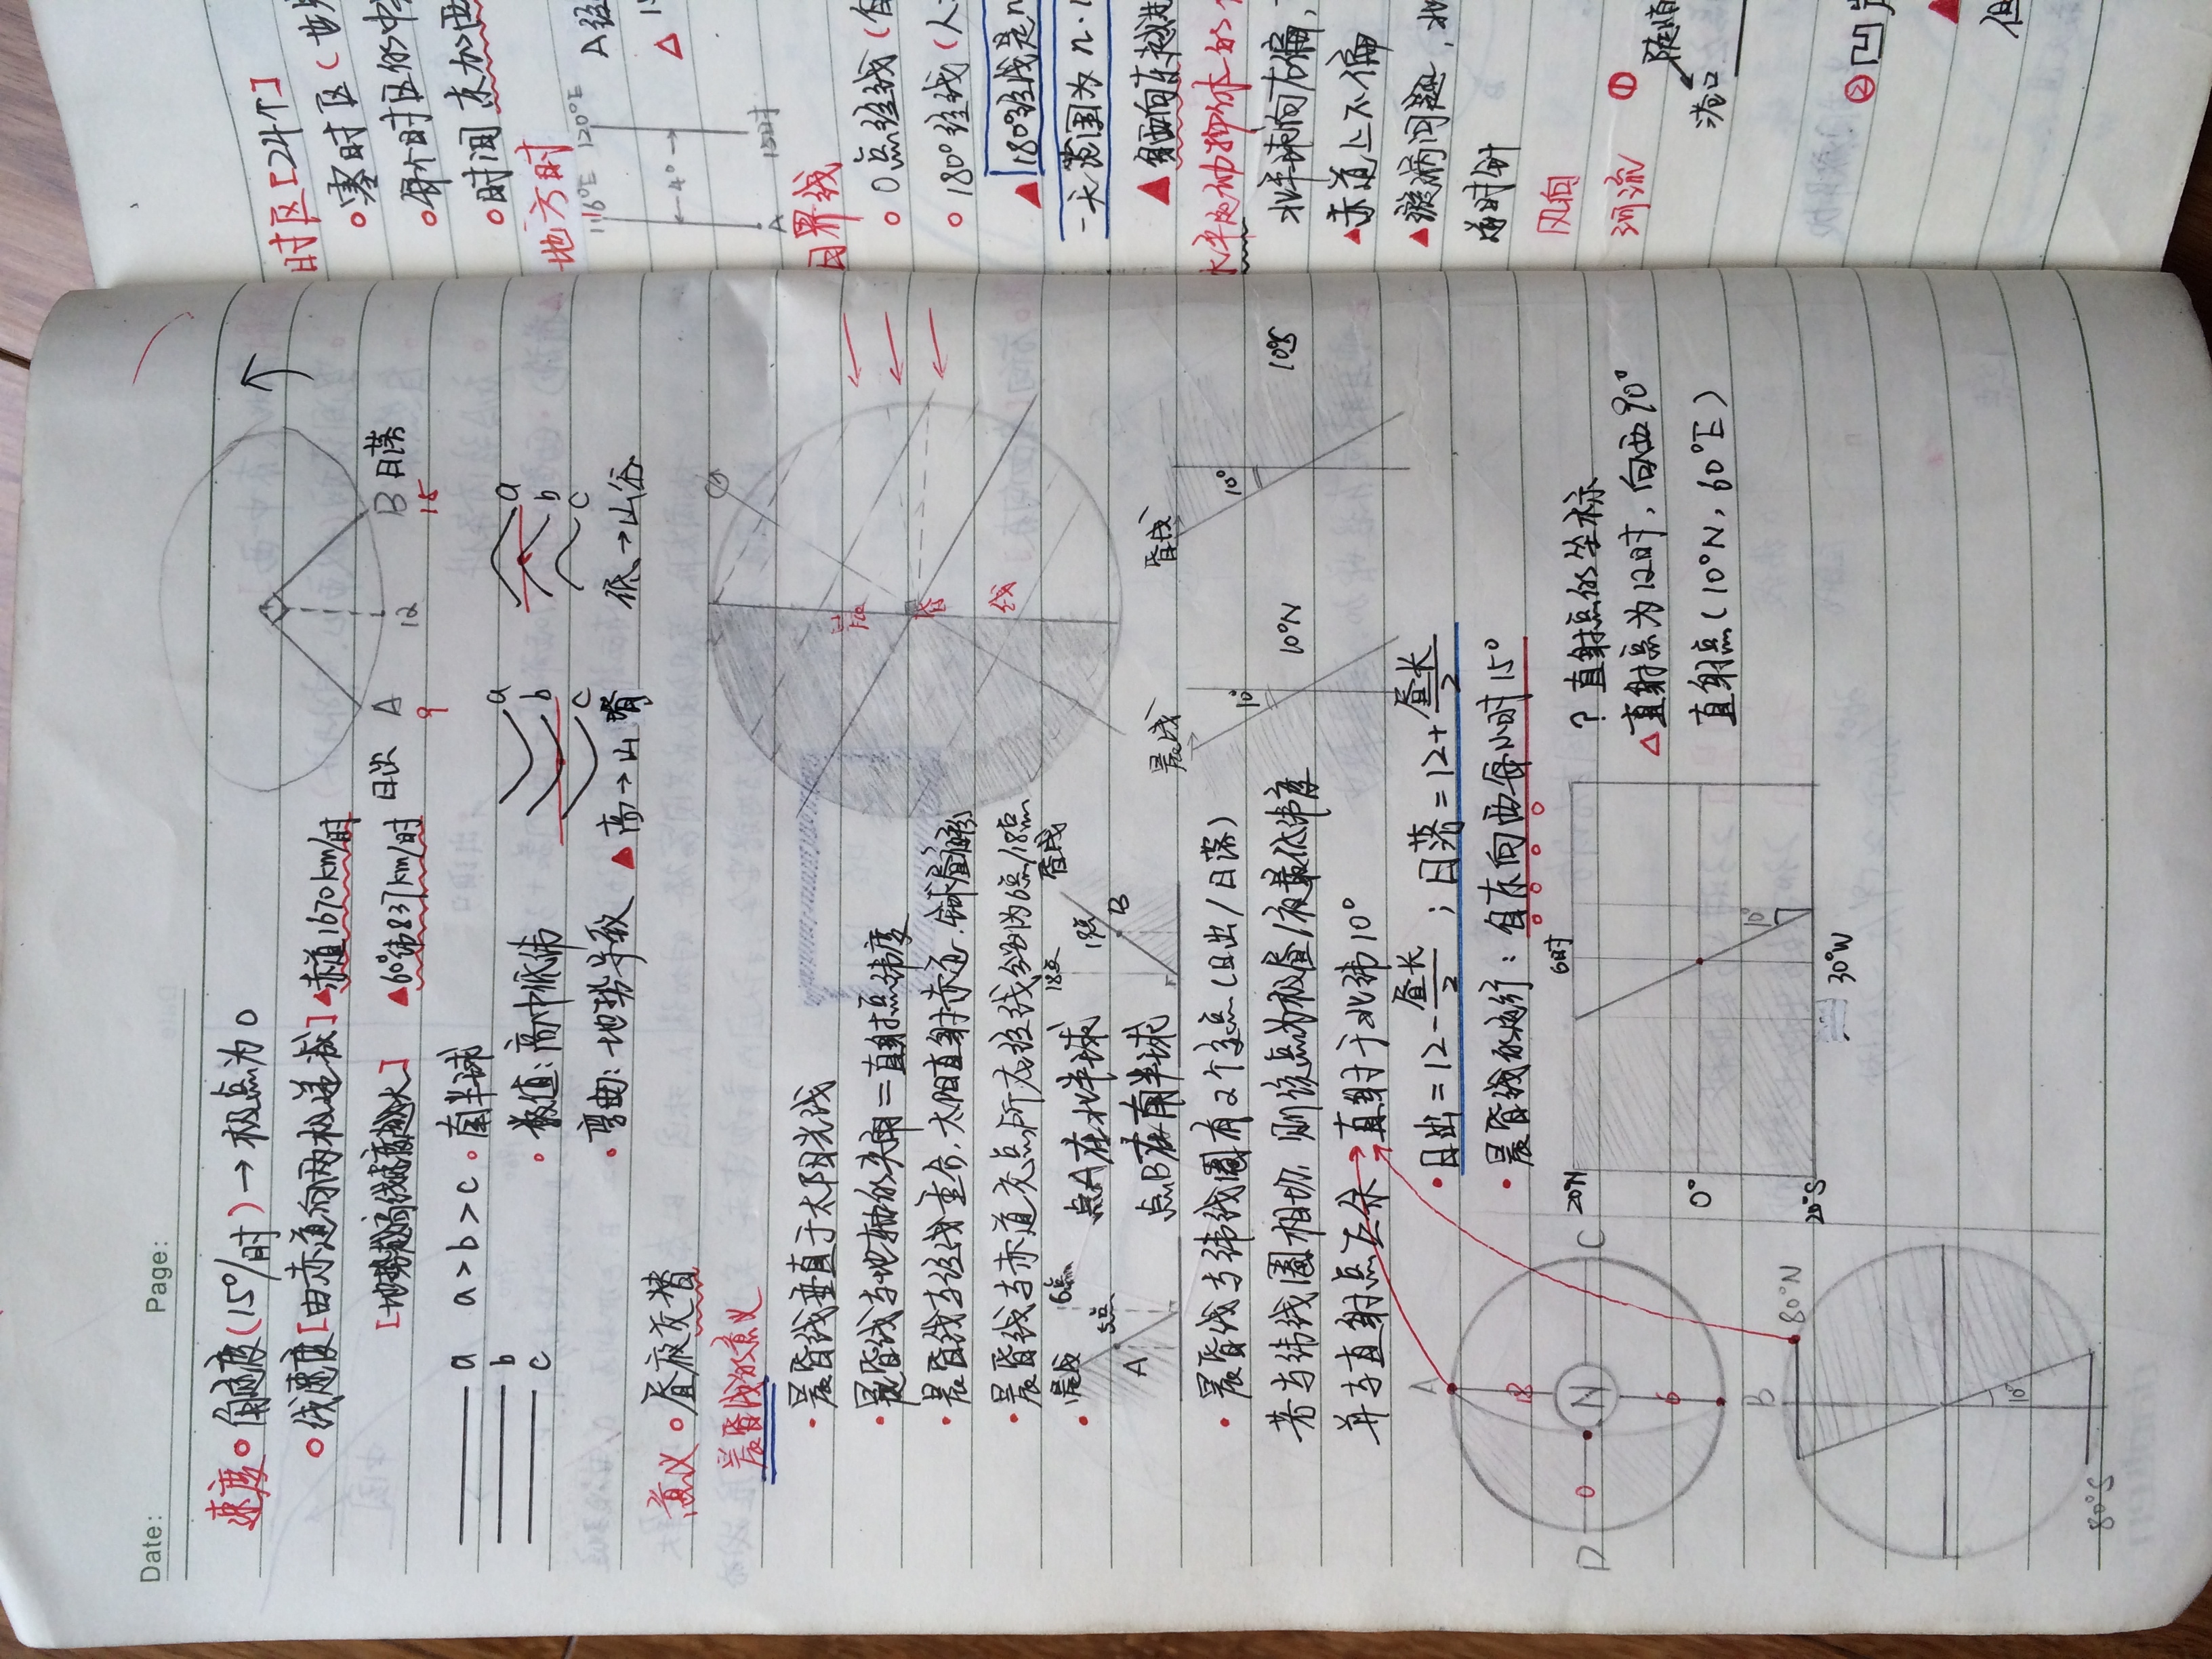 Date: Page:
速度 角速度(15°/时)→极点为0
线速度[由赤道向两极递减] ▲赤道1670km/时
[地势越高线速度越大] ▲60°纬837km/时
日出 A 12 B 日落
9 15
a a>b>c 南半球
b
c 数值:高中低纬
弯曲:地势导致
a
b
c
a
b
c
▲高→山脊 低→山谷
意义 昼夜交替
晨昏线的意义
晨昏线垂直于太阳光线
晨昏线与地轴的夹角=直射点纬度
晨昏线与经线重合,太阳直射赤道,全球昼夜等分
晨昏线与赤道交点所在经线分别为6点/18点
昏
线
晨线 6点 5点 A
点A在北半球
点B在南半球
18点 昏线 19点 B
晨昏线与纬线圈有2个交点(日出/日落)
若与纬线圈相切,则该点为极昼/夜最低纬度
并与直射点互余→直射于北纬10°
晨线 10° 10°N
昏线 10° 10°S
日出=12-昼长/2;日落=12+昼长/2
晨昏线的运行:自东向西每小时15°
A
18
D 0 N C
6
B
80°N
10°
80°S
6时
20°N
0°
10°
20°S
30°W
?直射点的坐标
△直射点为12时,向西90°
直射点(10°N,60°E)
时区[24个]
零时区(
每个时区的中
时间 东加西
地方时
116°E 120°E
4°
A 15时
A经
△ 1
日界线
0点经线(自
180°经线(人
▲180°经线是n
一天范围为n·1
▲自西向东越过
水平运动物体的
北半球向右偏,
▲赤道上不偏
▲漩涡问题,北
逆时针
风向
河流 ①
港口
②凹岸
▲
但